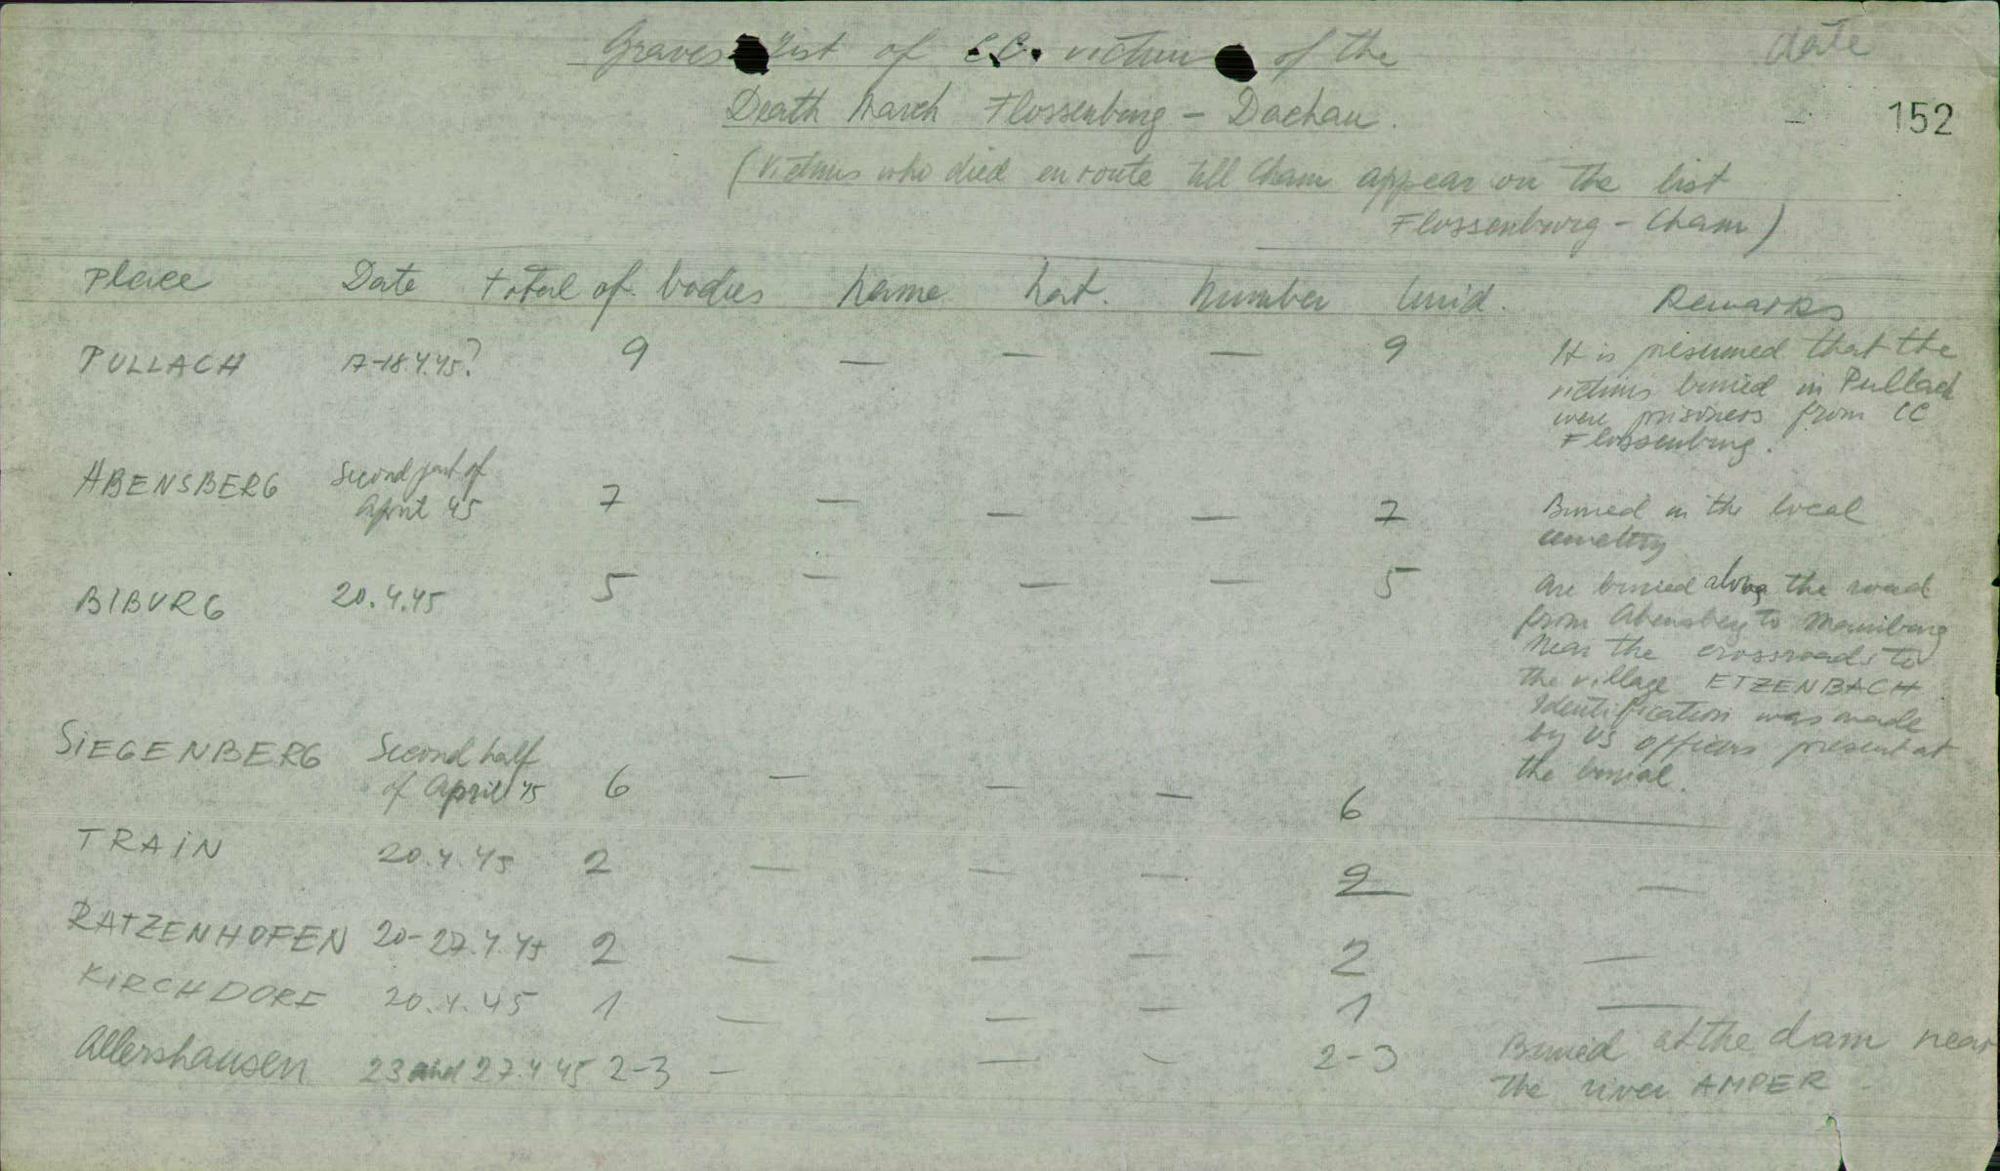 Graves List of C.C. victims of the
date
Death March Flossenburg - Dachau.
152
(Victims who died en route till Cham appear on the list
Flossenburg - Cham)
Place Date total of bodies Name Nat. Number Unid. Remarks
PULLACH 17-18.4.45? 9 — — — 9 It is presumed that the
victims buried in Pullach
were prisoners from CC
Flossenburg.
ABENSBERG Second part of
April 45 7 — — — 7 Buried in the local
cemetery
BIBURG 20.4.45 5 — — — 5 are buried along the road
from Abensberg to Mainburg
Near the crossroads to
the village ETZENBACH.
Identification was made
by US officers present at
the burial.
SIEGENBERG Second half
of April 45 6 — — — 6 —
TRAIN 20.4.45 2 — — — 2 —
RATZENHOFEN 20-27.4.45 2 — — — 2 —
KIRCHDORF 20.4.45 1 — — — 1 —
Allershausen 23 and 27.4 45 2-3 — — — 2-3 Buried at the dam near
the river AMPER